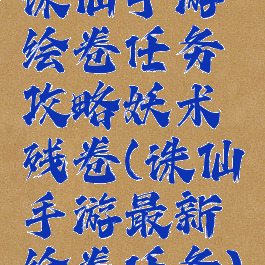 诛仙手游
绘卷任务
攻略妖术
残卷(诛仙
手游最新
绘卷任务)